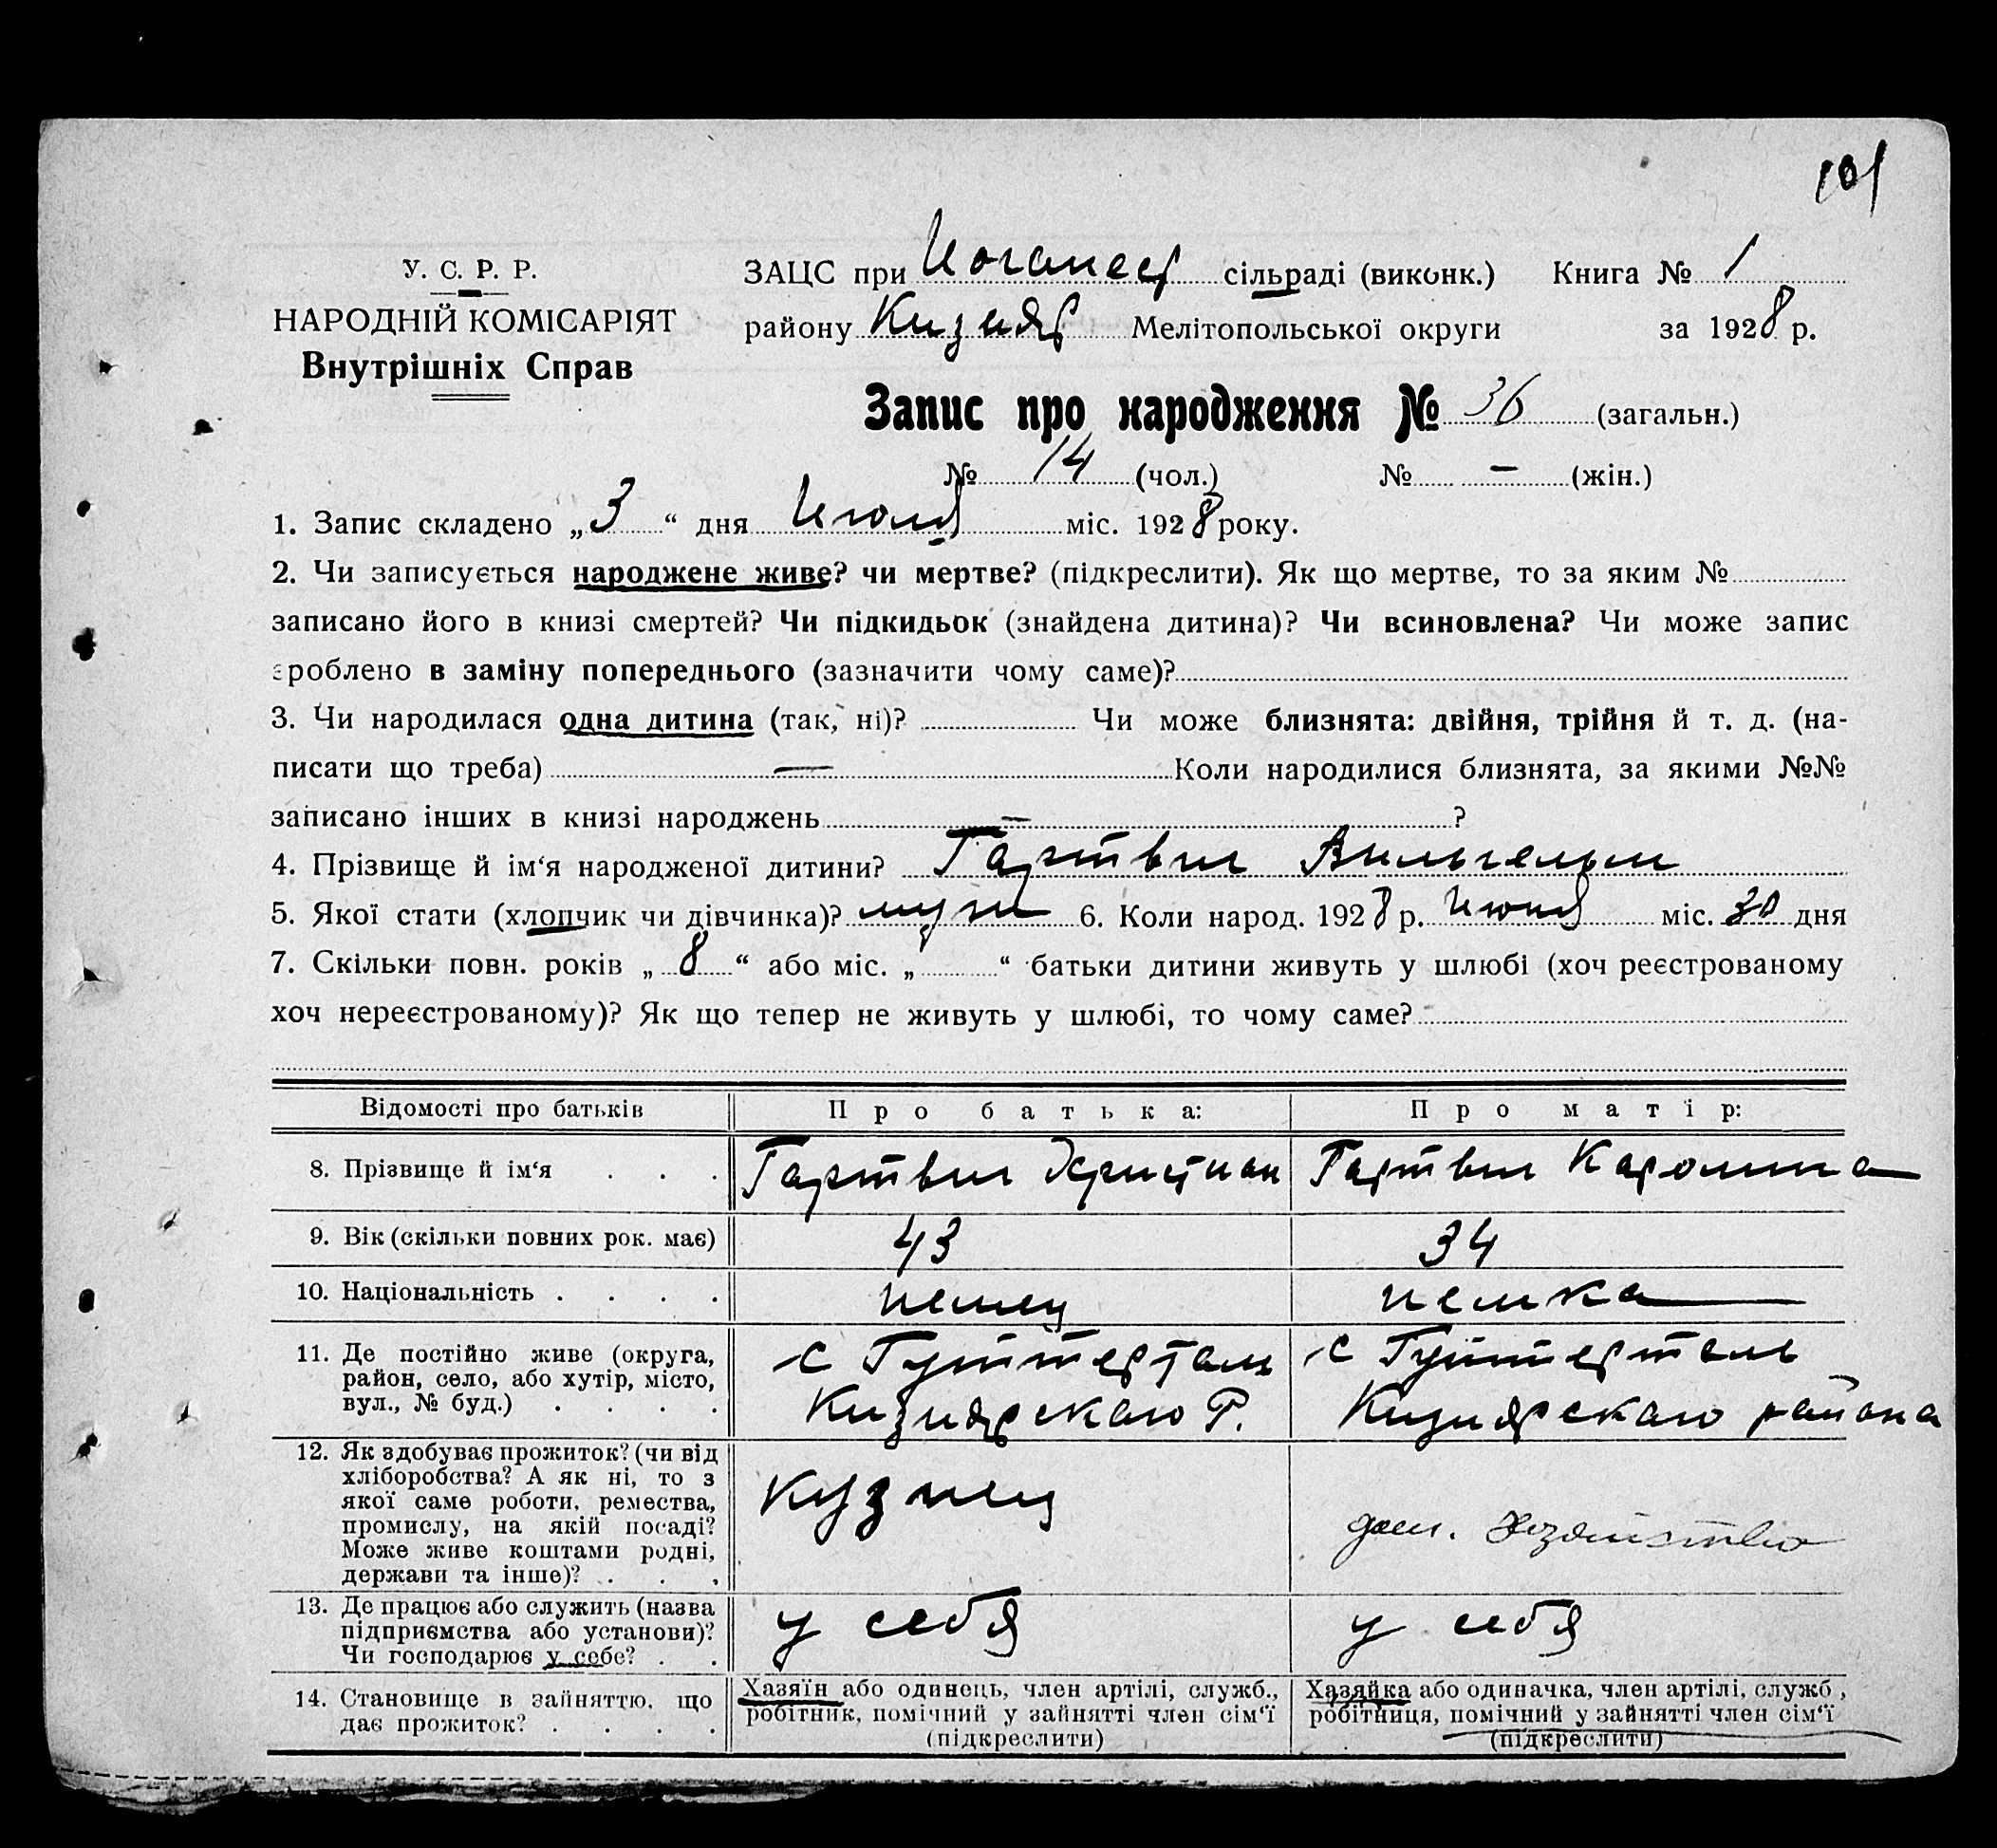 101
У. С. Р. Р.
НАРОДНІЙ КОМІСАРІЯТ
Внутрішніх Справ
ЗАЦС при Иоганеср сільраді (виконк.) Книга № 1
району Кизияр Мелітопольської округи за 1928 р.
Запис про народження № 36 (загальн.)
№ 14 (чол.) № — (жін.)
1. Запис складено „3“ дня Июля міс. 1928 року.
2. Чи записується народжене живе? чи мертве? (підкреслити). Як що мертве, то за яким №
записано його в книзі смертей? Чи підкидьок (знайдена дитина)? Чи всиновлена? Чи може запис
зроблено в заміну попереднього (зазначити чому саме)?
3. Чи народилася одна дитина (так, ні)? Чи може близнята: двійня, трійня й т. д. (на-
писати що треба) — Коли народилися близнята, за якими №№
записано інших в книзі народжень — ?
4. Прізвище й ім‘я народженої дитини? Гартвиг Вильгельм
5. Якої стати (хлопчик чи дівчинка)? муж 6. Коли народ. 1928 р. міс. 30 дня
7. Скільки повн. років „8“ або міс. „ “ батьки дитини живуть у шлюбі (хоч реєстрованому
хоч нереєстрованому)? Як що тепер не живуть у шлюбі, то чому саме?
Відомості про батьків Про батька: Про матір:
8. Прізвище й ім‘я . . . Гартвиг Христиан Гартвиг Каролина
9. Вік (скільки повних рок. має) 43 34
10. Національність . . . . немец немка
11. Де постійно живе (округа, район, село, або хутір, місто, вул., № буд.) . . . . с Гуттерталь Кизиярскаго Р. с Гуттерталь Кизиярскаго района
12. Як здобуває прожиток? (чи від хліборобства? А як ні, то з якої саме роботи, ремества, промислу, на якій посаді? Може живе коштами родні, держави та інше)? . . . кузнец дом. Хозяйство
13. Де працює або служить (назва підприємства або установи)? Чи господарює у себе? . . у себя у себя
14. Становище в зайняттю, що дає прожиток? . . . . Хазяїн або одинець, член артілі, служб., робітник, помічний у зайнятті член сім‘ї (підкреслити) Хазяйка або одиначка, член артілі, служб., робітниця, помічний у зайнятті член сім‘ї (підкреслити)